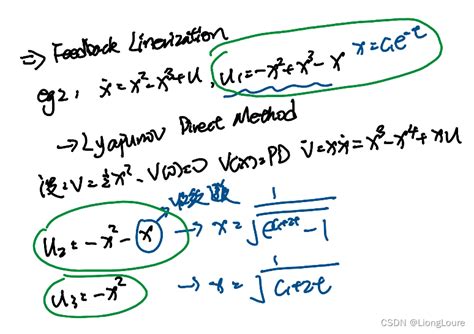 ⇒ Feedback Linerization
eg2: ẋ=x²-x³+u, u₁=-x²+x³-x x=c₁e^-t
→ Lyapunov Direct Method
设: V=½x², V(0)=0 V(x)=PD V̇=xẋ=x³-x⁴+xu
收敛
u₂=-x²-x → x=1/√(e^(c₁+2t)-1)
u₃=-x² → x=1/√(c₁+2t)
CSDN @LiongLoure